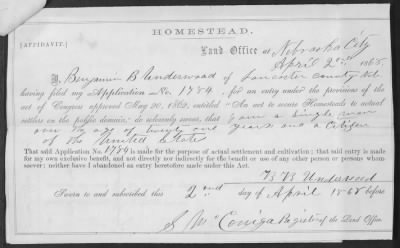 HOMESTEAD.
[AFFIDAVIT.]
Land Office at Nebraska City
April 2nd 1868.
I, Benjamin B Underwood of Lancaster county Neb
having filed my Application No. 1784, for an entry under the provisions of the
act of Congress approved May 20, 1862, entitled "An act to secure Homesteads to actual
settlers on the public domain," do solemnly swear, that I am a single man
over the age of twenty one years and a Citizen
of the United States
That said Application No. 1784 is made for the purpose of actual settlement and cultivation; that said entry is made
for my own exclusive benefit, and not directly nor indirectly for the benefit or use of any other person or persons whom-
soever; neither have I abandoned an entry heretofore made under this Act.
B B Underwood
Sworn to and subscribed this 2nd day of April 1868 before
Register of the Land Office.